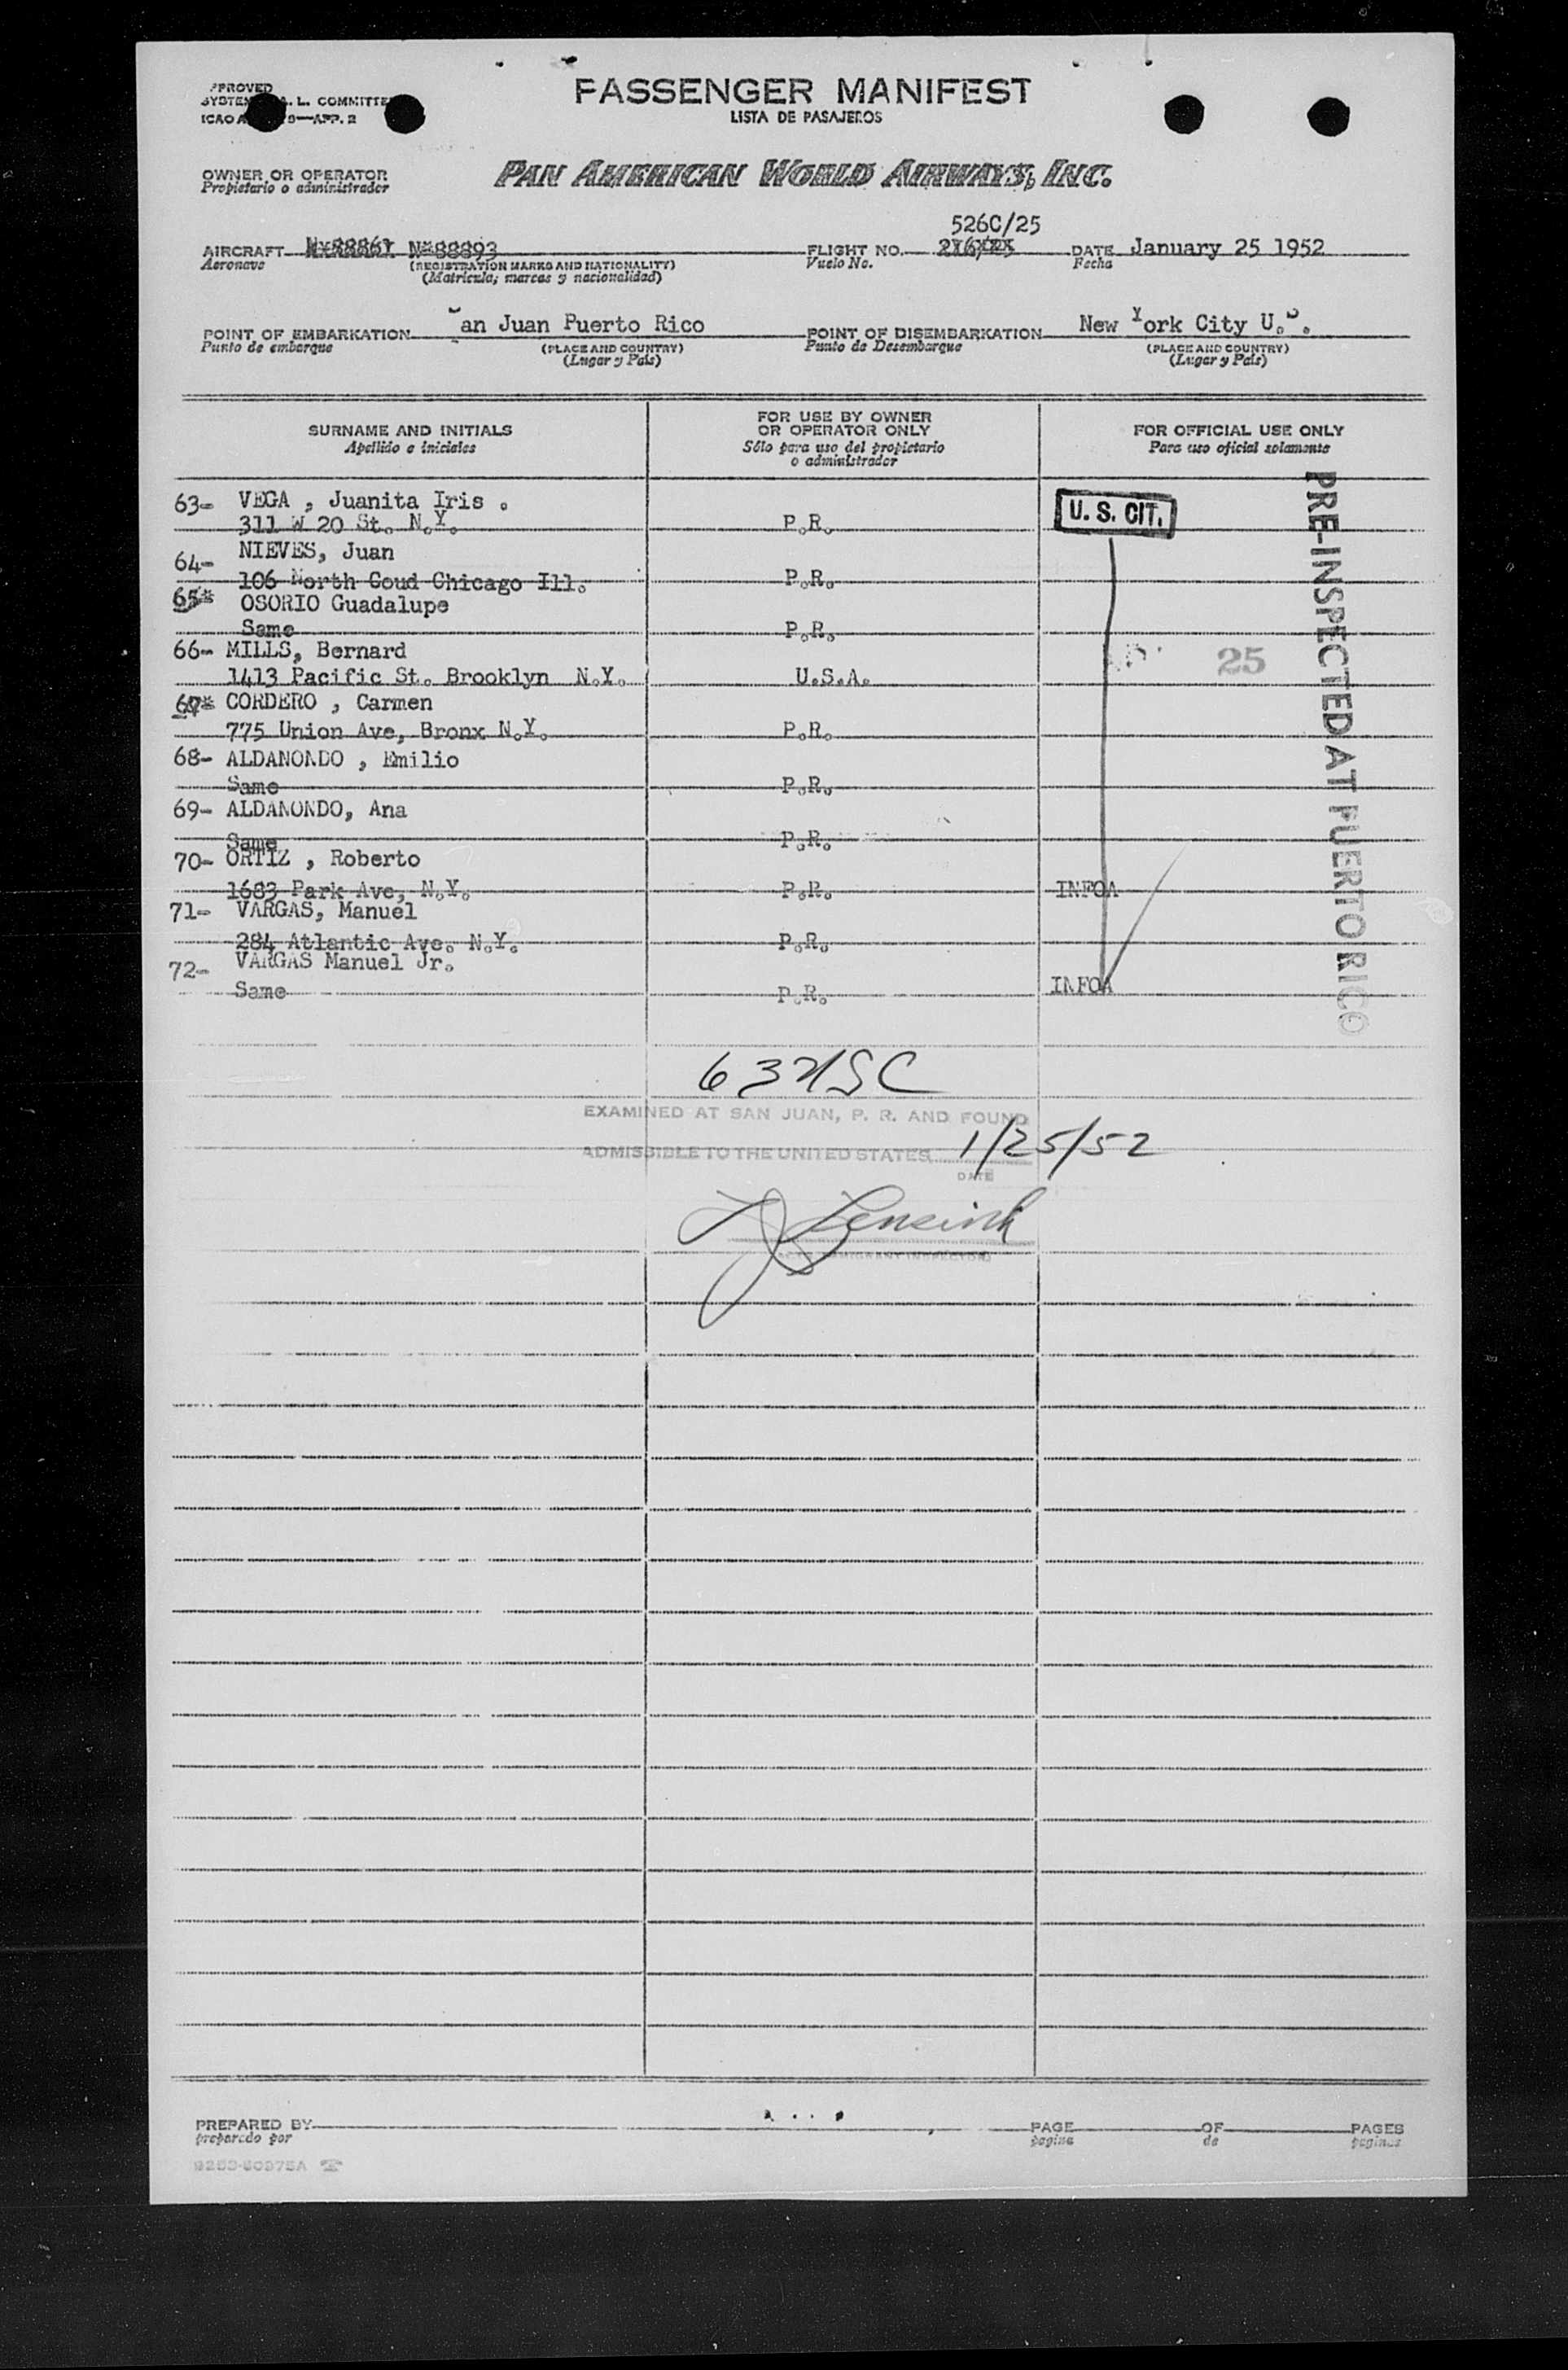 PASSENGER MANIFEST
LISTA DE PASAJEROS
L. COMMITTEE
APP. 2
OWNER OR OPERATOR
Propietario o administrador
PAN AMERICAN WORLD AIRWAYS, INC.
526C/25
AIRCRAFT N-88861 N-88893 FLIGHT NO. 216/25 DATE January 25 1952
Aeronave (REGISTRATION MARKS AND NATIONALITY) Vuelo No. Fecha
(Matricula; marcas y nacionalidad)
POINT OF EMBARKATION San Juan Puerto Rico POINT OF DISEMBARKATION New York City U.S.
Punto de embarque (PLACE AND COUNTRY) Punto de Desembarque (PLACE AND COUNTRY)
(Lugar y País) (Lugar y País)
SURNAME AND INITIALS FOR USE BY OWNER OR OPERATOR ONLY FOR OFFICIAL USE ONLY
Apellido e iniciales Sólo para uso del propietario o administrador Para uso oficial solamente
63- VEGA , Juanita Iris .
311 W 20 St. N.Y. P.R. U. S. CIT.
64- NIEVES, Juan
106 North Goud Chicago Ill. P.R.
65* OSORIO Guadalupe
Same P.R.
66- MILLS, Bernard 25
1413 Pacific St. Brooklyn N.Y. U.S.A.
67* CORDERO , Carmen
775 Union Ave, Bronx N.Y. P.R.
68- ALDANONDO , Emilio
Same P.R.
69- ALDANONDO, Ana
Same P.R.
70- ORTIZ , Roberto
1683 Park Ave, N.Y. P.R. INFOA
71- VARGAS, Manuel
284 Atlantic Ave. N.Y. P.R.
72- VARGAS Manuel Jr.
Same P.R. INFOA
PRE-INSPECTED AT PUERTO RICO
EXAMINED AT SAN JUAN, P. R. AND FOUND
ADMISSIBLE TO THE UNITED STATES 1/25/52
DATE
IMMIGRANT INSPECTOR
PREPARED BY PAGE OF PAGES
preparado por pagina de paginas